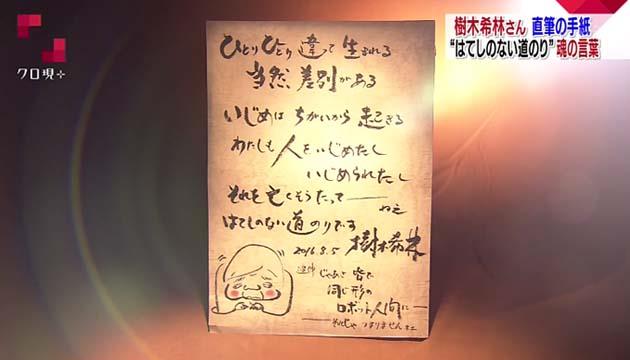 クロ現+
樹木希林さん 直筆の手紙
“はてしのない道のり” 魂の言葉
ひとりひとり違って生まれる
当然、差別がある
いじめは ちがいから 起こきる
わたしも 人をいじめたし
いじめられたし
それを 亡くそうたって―― ねえ
はてしのない道のりです
2016.8.5 樹木希林
追伸 じゃあさ 皆で
同じ形の
ロボット人間に――
――それじゃ つまりませんォニ